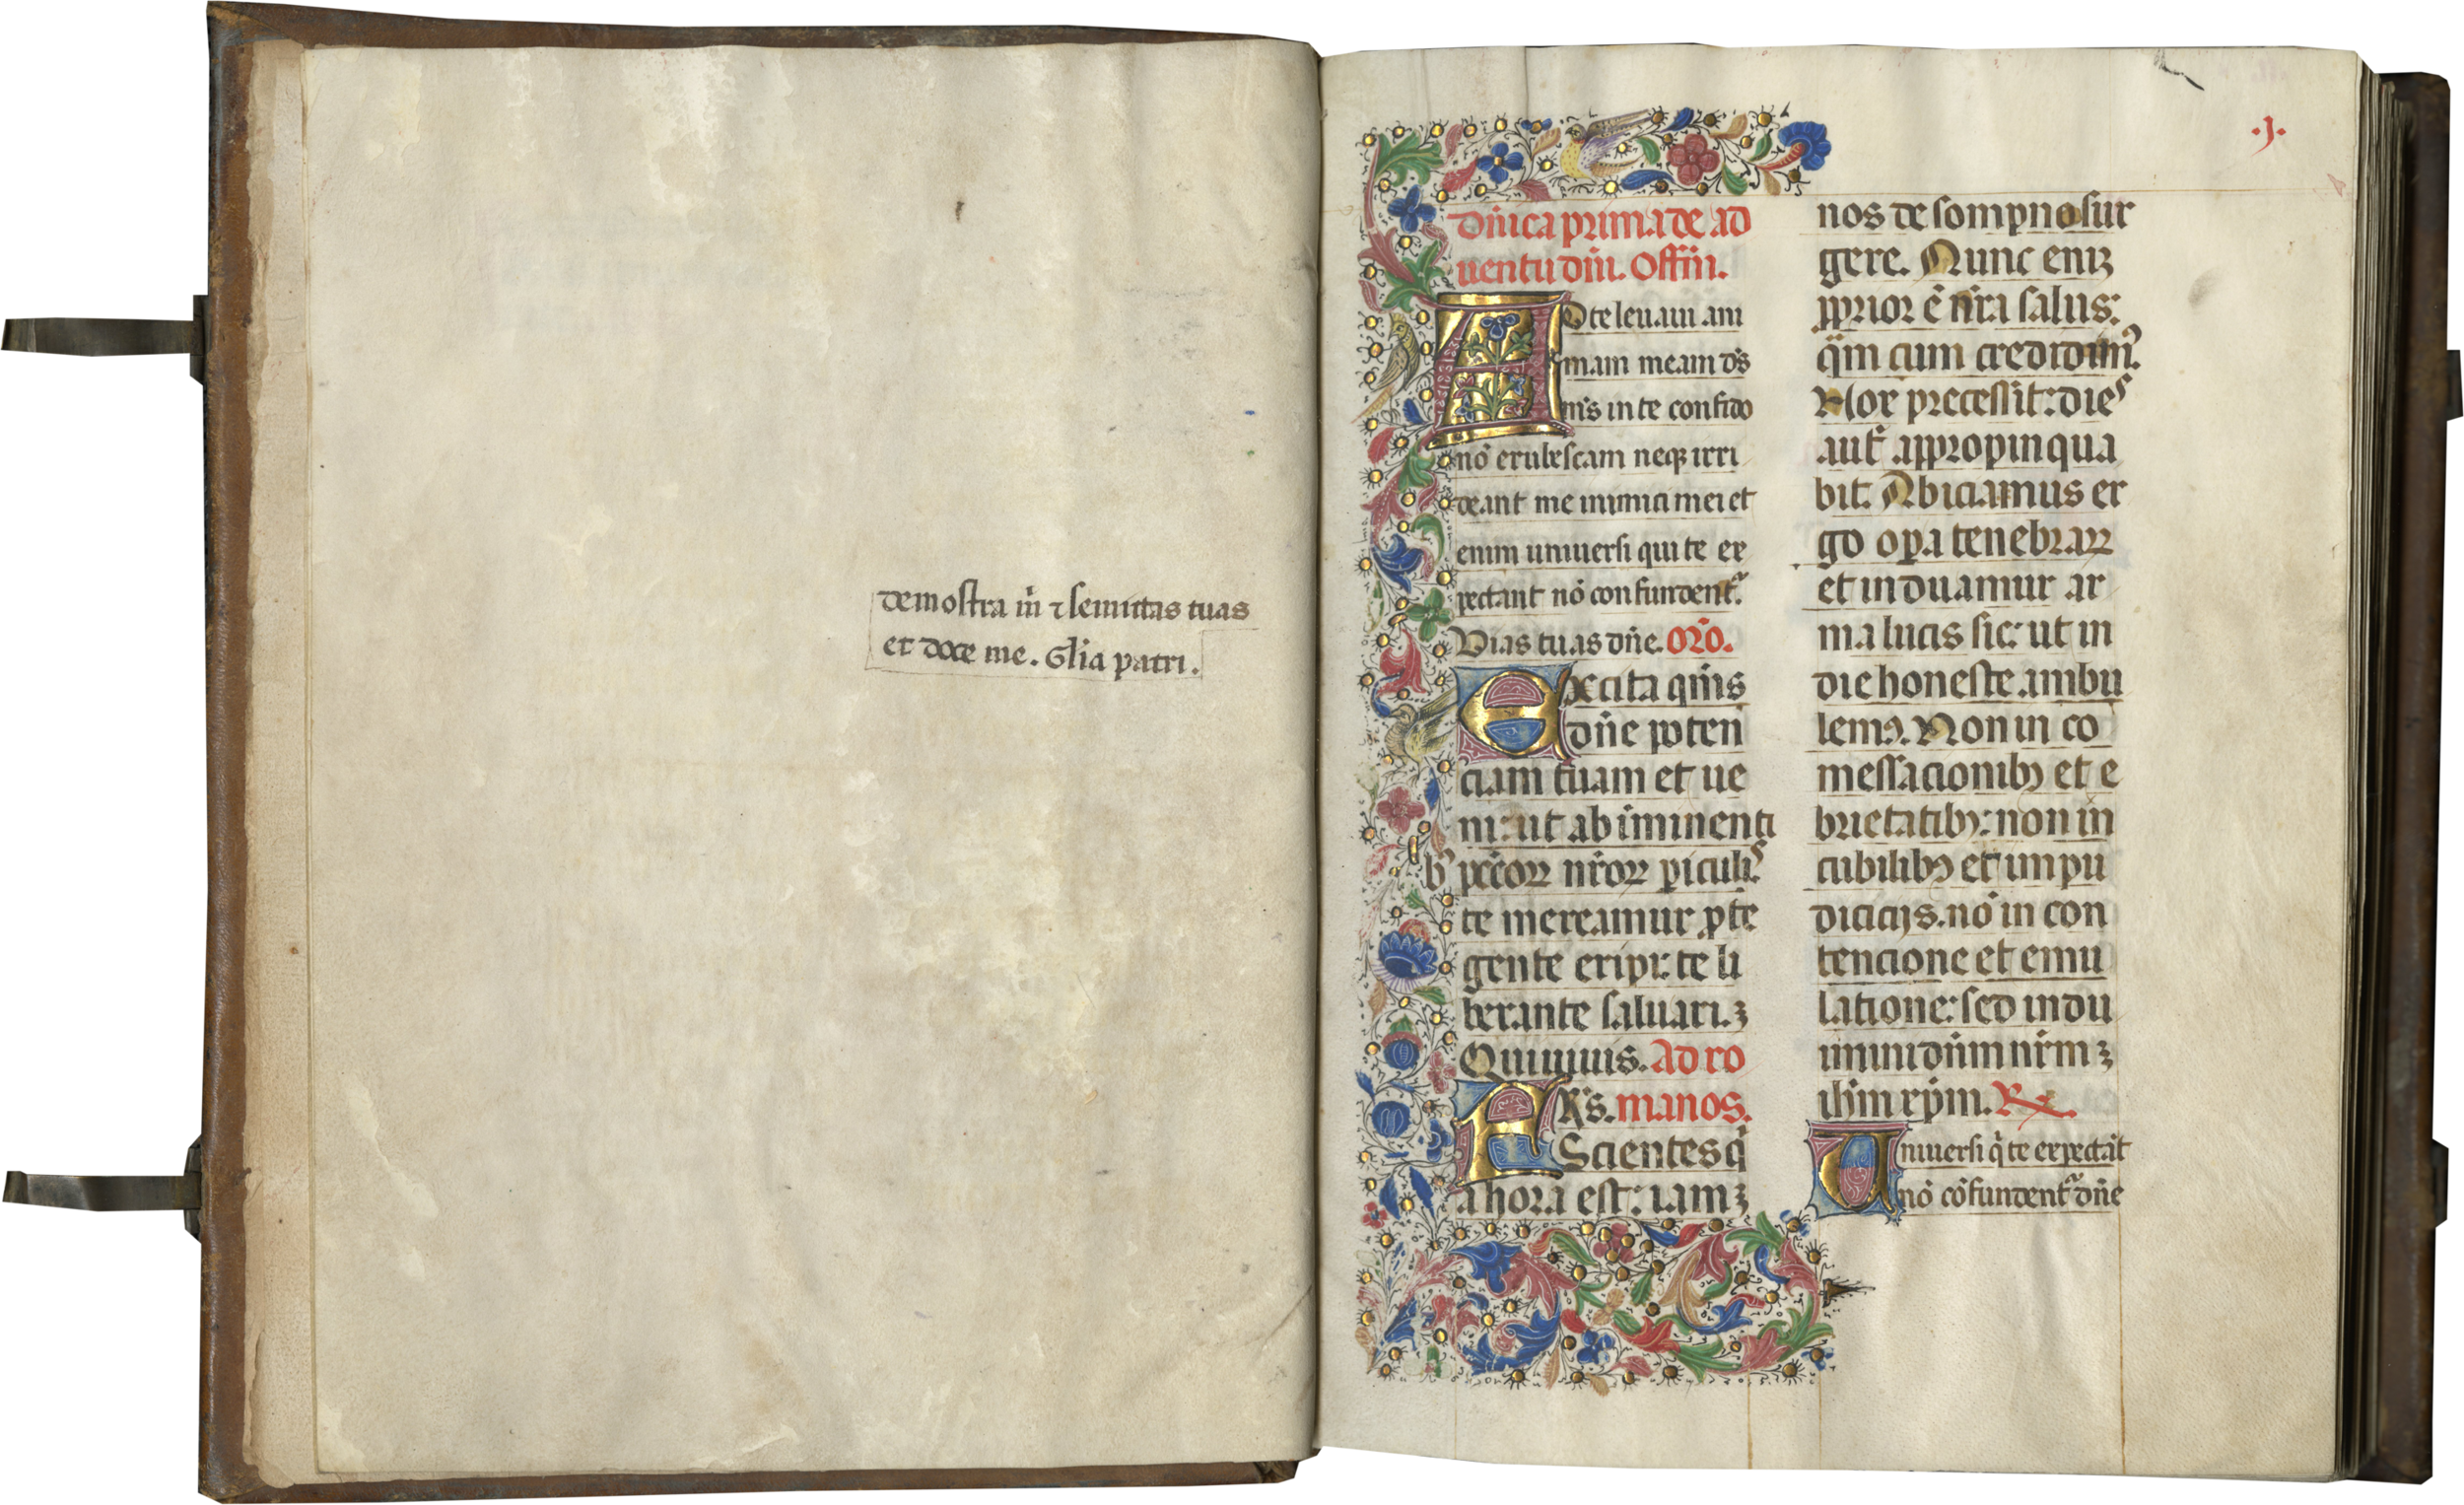 demostra m̄ ⁊ semitas tuas
et doce me. Gl̄ia patri.
.j.
Dn̄ica prima de ad
uentu dn̄i. Offm̄.
AD te leuaui ani
mam meam ds̄
ms̄ in te confido
nō erubescam neqꝫ irri
deant me inimici mei et
enim uniuersi qui te ex
pectant nō confundent᷑.
Vias tuas dn̄e. Oro᷑.
Excita qms̄
dn̄e poten
ciam tuam et ue
ni: ut ab iminenti
bꝯ pcc̄oꝝ nr̄oꝝ piculis
te mereamur ꝓte
gente eripi: te li
berante saluari. ꝫ
Qui uiuis. Ad ro
FRs̄. manos.
Scientes q̇
a hora est: iam ꝫ
nos de sompno sur
gere. Nunc eniꝫ
ꝓprior ē nr̄a salus:
qm̄ cum credidimꝯ.
Nox precessit: dies
aut̄ appropinqua
bit. Abiciamus er
go oꝑa tenebraꝝ
et induamur ar
ma lucis sic: ut in
die honeste ambu
lemꝯ. Non in co
messacionibꝫ et e
brietatibꝫ: non in
cubilibꝫ et impu
dicicijs. nō in con
tencione et emu
latione: sed indu
imini dn̄m nr̄m ꝫ
ihm̄ xp̄m. ℞.
Vniuersi q̇ te expectāt
nō cōfundent᷑ dn̄e